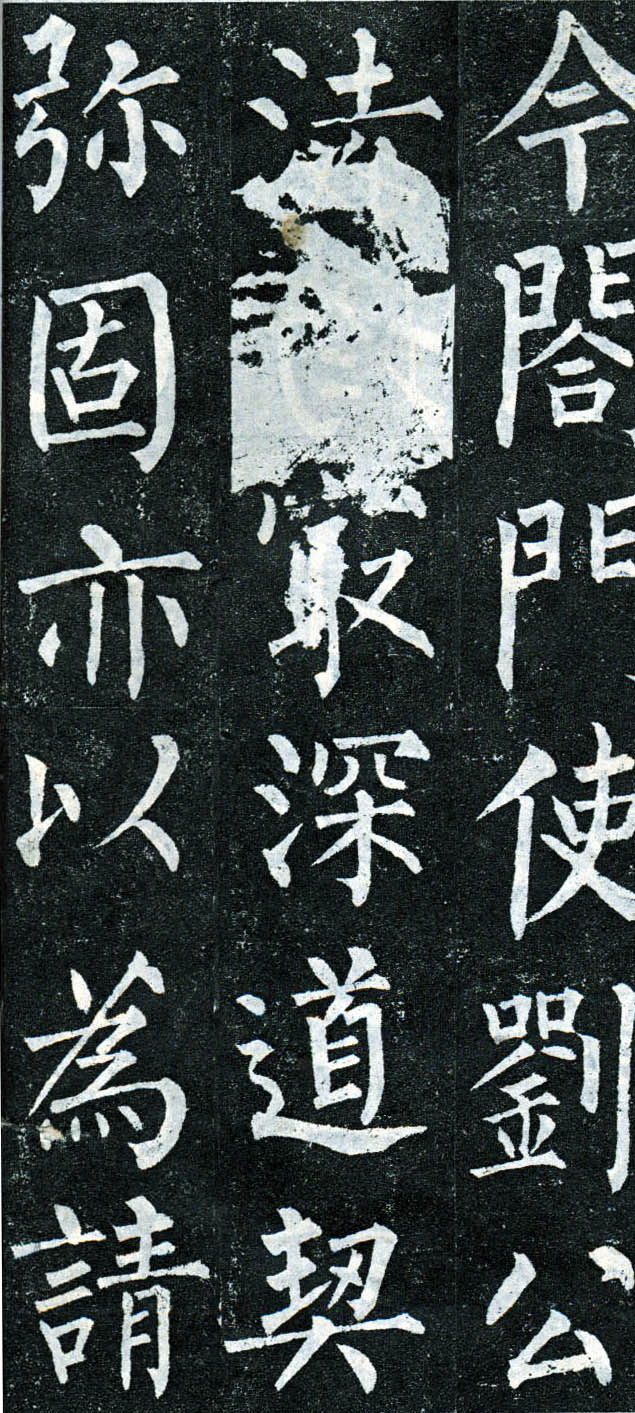 今閤門使劉公
法㝡深道契
弥固亦以為請